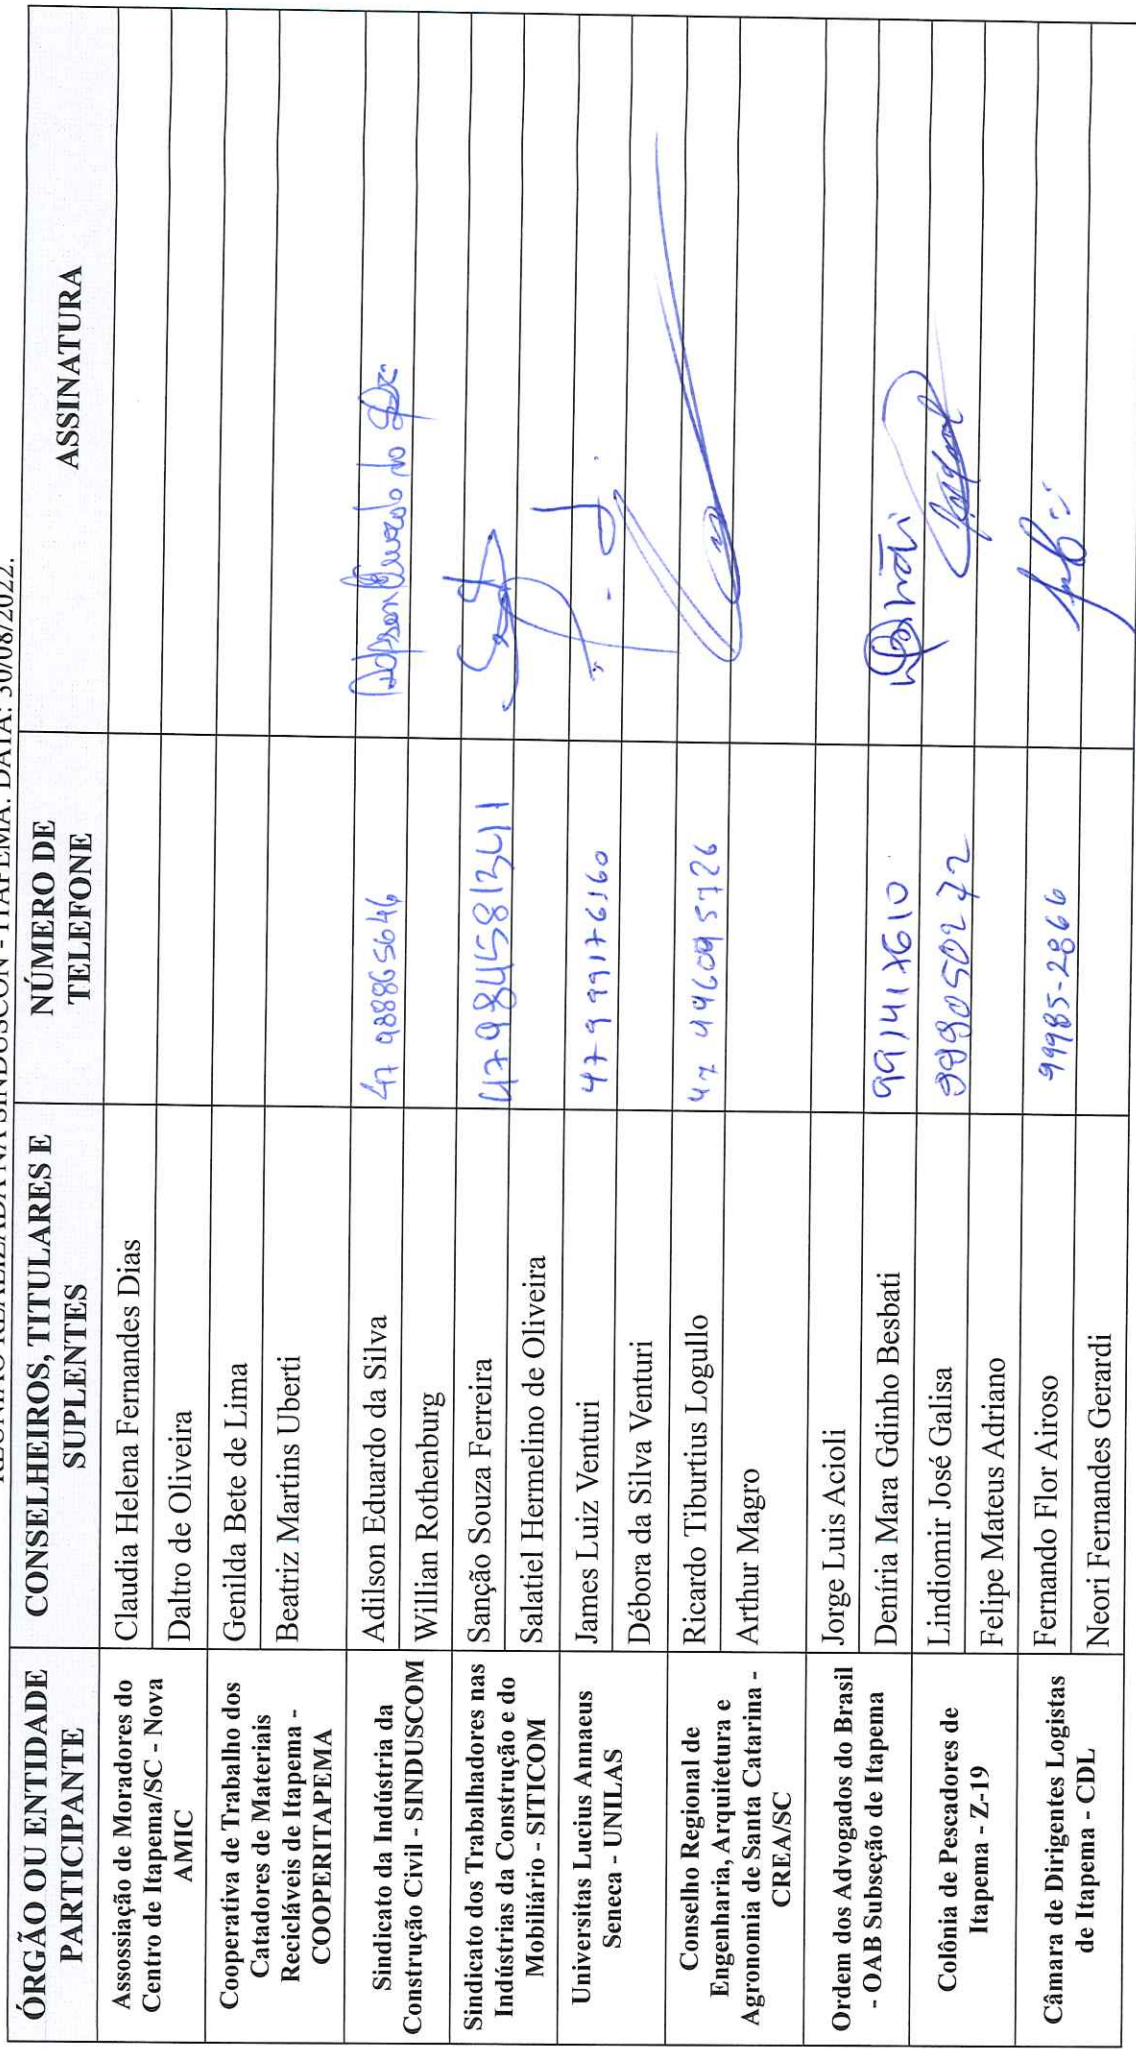 REUNIÃO REALIZADA NA SINDUSCON - ITAPEMA. DATA: 30/08/2022.
ÓRGÃO OU ENTIDADE PARTICIPANTE
CONSELHEIROS, TITULARES E SUPLENTES
NÚMERO DE TELEFONE
ASSINATURA
Assossiação de Moradores do
Centro de Itapema/SC - Nova
AMIC
Claudia Helena Fernandes Dias
Daltro de Oliveira
Cooperativa de Trabalho dos
Catadores de Materiais
Recicláveis de Itapema -
COOPERITAPEMA
Genilda Bete de Lima
Beatriz Martins Uberti
Sindicato da Indústria da
Construção Civil - SINDUSCOM
Adilson Eduardo da Silva
47 988865646
Willian Rothenburg
Sindicato dos Trabalhadores nas
Indústrias da Construção e do
Mobiliário - SITICOM
Sanção Souza Ferreira
Salatiel Hermelino de Oliveira
Universitas Lucius Annaeus
Seneca - UNILAS
James Luiz Venturi
47 9 99176160
Débora da Silva Venturi
Conselho Regional de
Engenharia, Arquitetura e
Agronomia de Santa Catarina -
CREA/SC
Ricardo Tiburtius Logullo
Arthur Magro
Ordem dos Advogados do Brasil
- OAB Subseção de Itapema
Jorge Luis Acioli
Deníria Mara Gdinho Besbati
991417610
Colônia de Pescadores de
Itapema - Z-19
Lindiomir José Galisa
Felipe Mateus Adriano
Câmara de Dirigentes Logistas
de Itapema - CDL
Fernando Flor Airoso
99985-2866
Neori Fernandes Gerardi